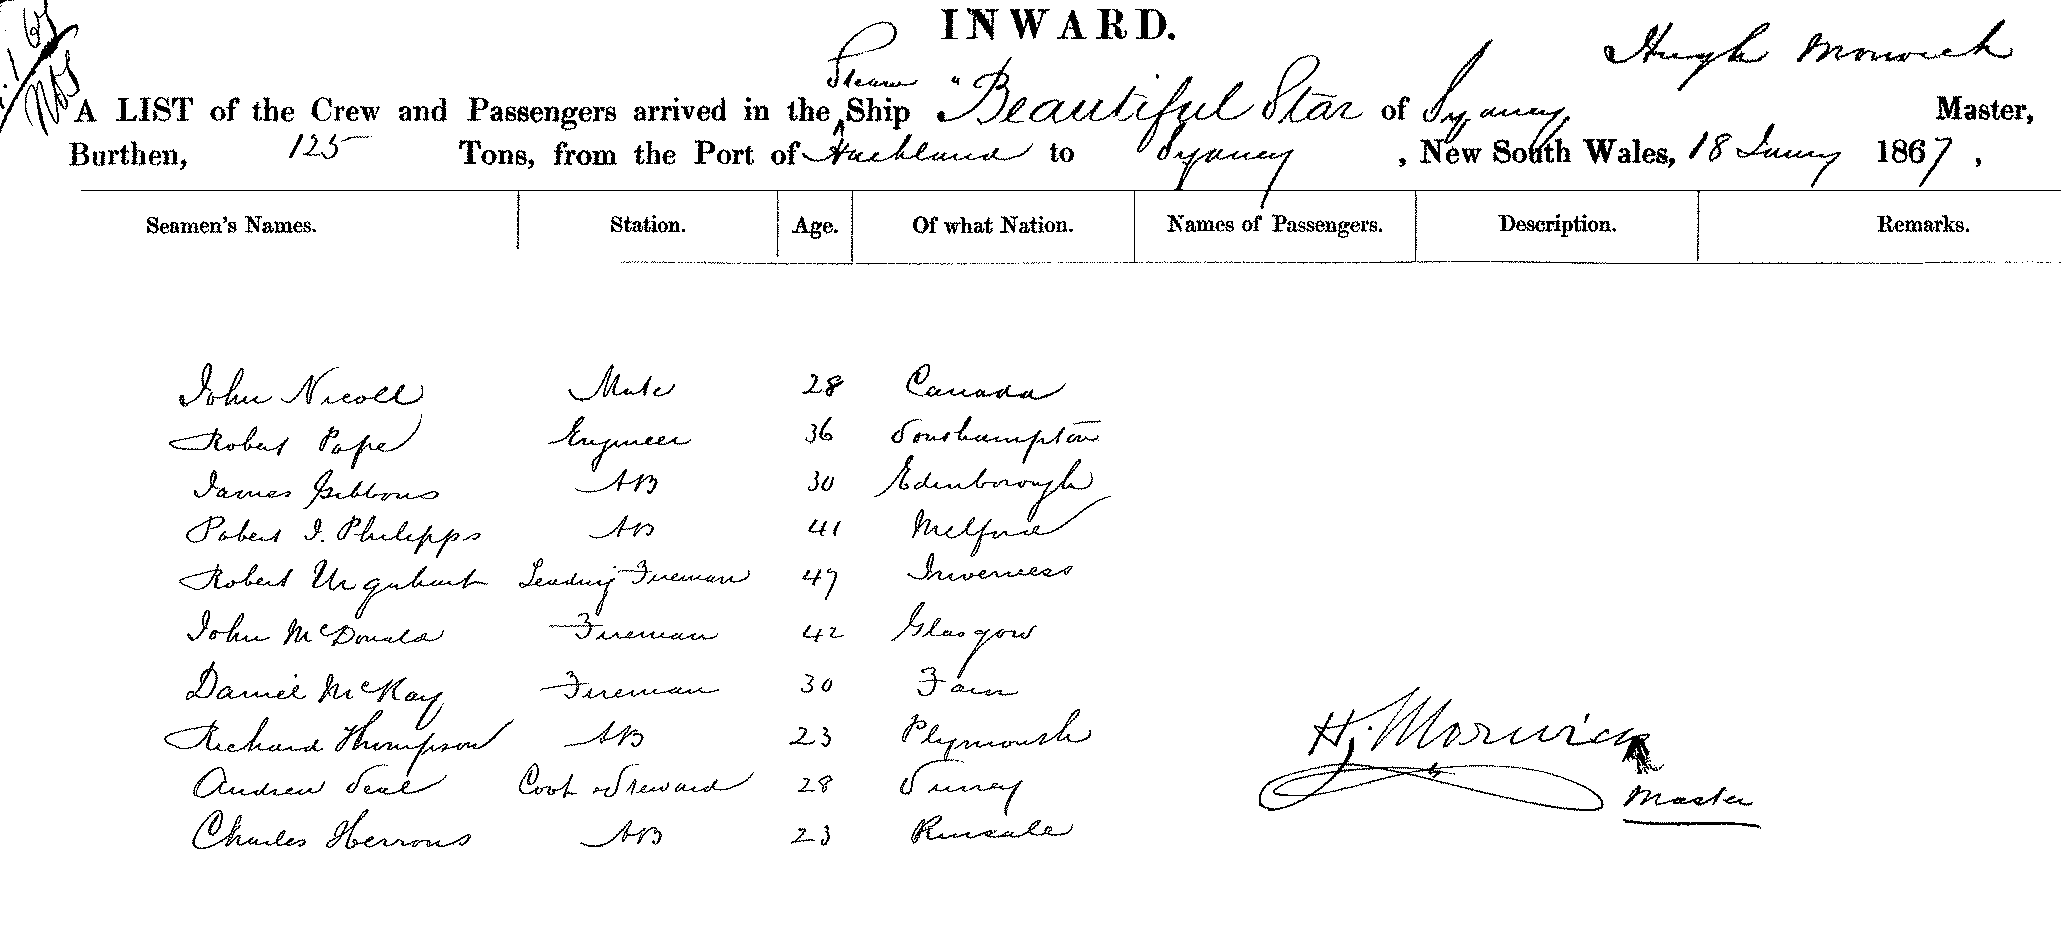 INWARD.
Hugh Morwick
Steam
A LIST of the Crew and Passengers arrived in the Ship "Beautiful Star of Sydney Master,
Burthen, 125 Tons, from the Port of Auckland to Sydney , New South Wales, 18 1867 ,
Seamen's Names. Station. Age. Of what Nation. Names of Passengers. Description. Remarks.
John Nicoll Mate 28 Canada
Robert Pope Engineer 36 Southampton
James Gibbons AB 30 Edinborough
Robert J. Philipps AB 41 Melford
Robert Urquhart Leading Fireman 47 Inverness
John McDonald Fireman 42 Glasgow
Daniel McKay Fireman 30
Richard Thompson AB 23 Plymouth
Andrew Cook & Steward 28 Surrey
Charles Herrons AB 23 Kinsale
H. Morwick
Master